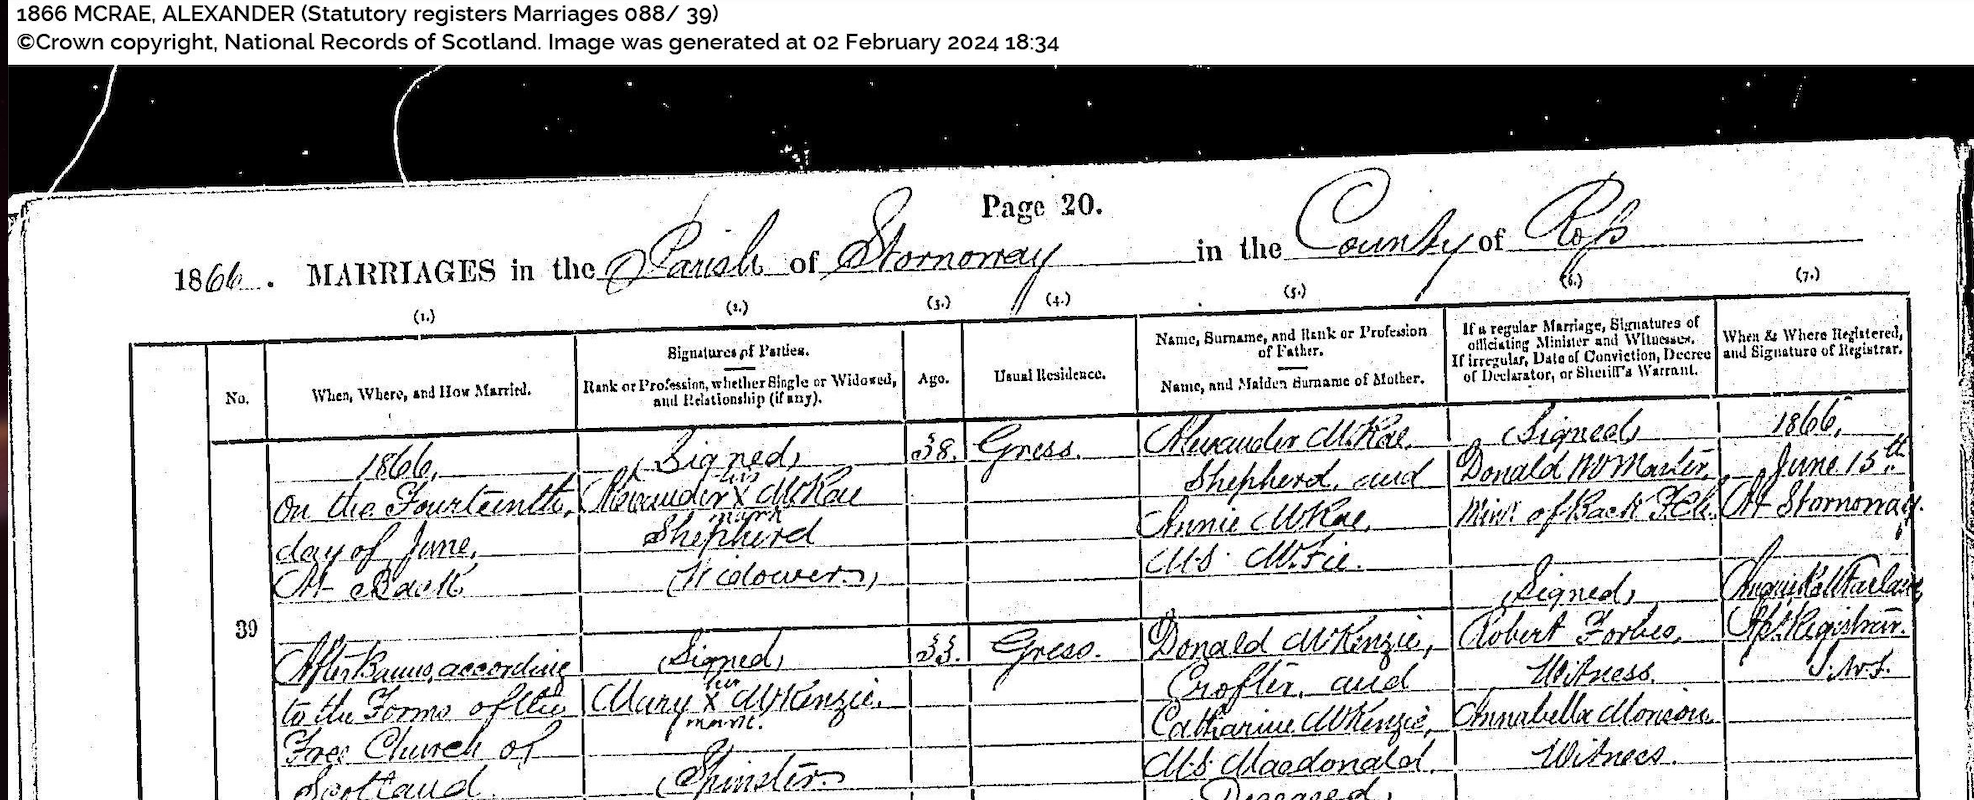 1866 MCRAE, ALEXANDER (Statutory registers Marriages 088/ 39)
©Crown copyright, National Records of Scotland. Image was generated at 02 February 2024 18:34
Page 20.
1866. MARRIAGES in the Parish of Stornoway in the County of Ross
(1.) (2.) (3.) (4.) (5.) (6.) (7.)
No.
When, Where, and How Married.
Signatures of Parties.
Rank or Profession, whether Single or Widowed,
and Relationship (if any).
Age.
Usual Residence.
Name, Surname, and Rank or Profession
of Father.
Name, and Maiden Surname of Mother.
If a regular Marriage, Signatures of
officiating Minister and Witnesses.
If irregular, Date of Conviction, Decree
of Declarator, or Sheriff's Warrant.
When & Where Registered,
and Signature of Registrar.
39
1866,
On the Fourteenth
day of June,
At Back
After Banns, according
to the Forms of the
Free Church of
Scotland.
(Signed)
his
Alexander X McRae
mark
Shepherd
(Widower)
(Signed)
her
Mary X McKenzie.
mark.
(Spinster)
38.
33.
Gress.
Gress.
Alexander McRae,
Shepherd, and
Annie McRae,
M.S. McFie.
Donald McKenzie,
Crofter, and
Catharine McKenzie,
M.S. Macdonald.
Deceased.
(Signed)
Donald McMaster,
Minr. of Back F.Ch.
(Signed)
Robert Forbes,
Witness.
Annabella Morison,
Witness.
1866,
June 15th
At Stornoway.
Registrar.